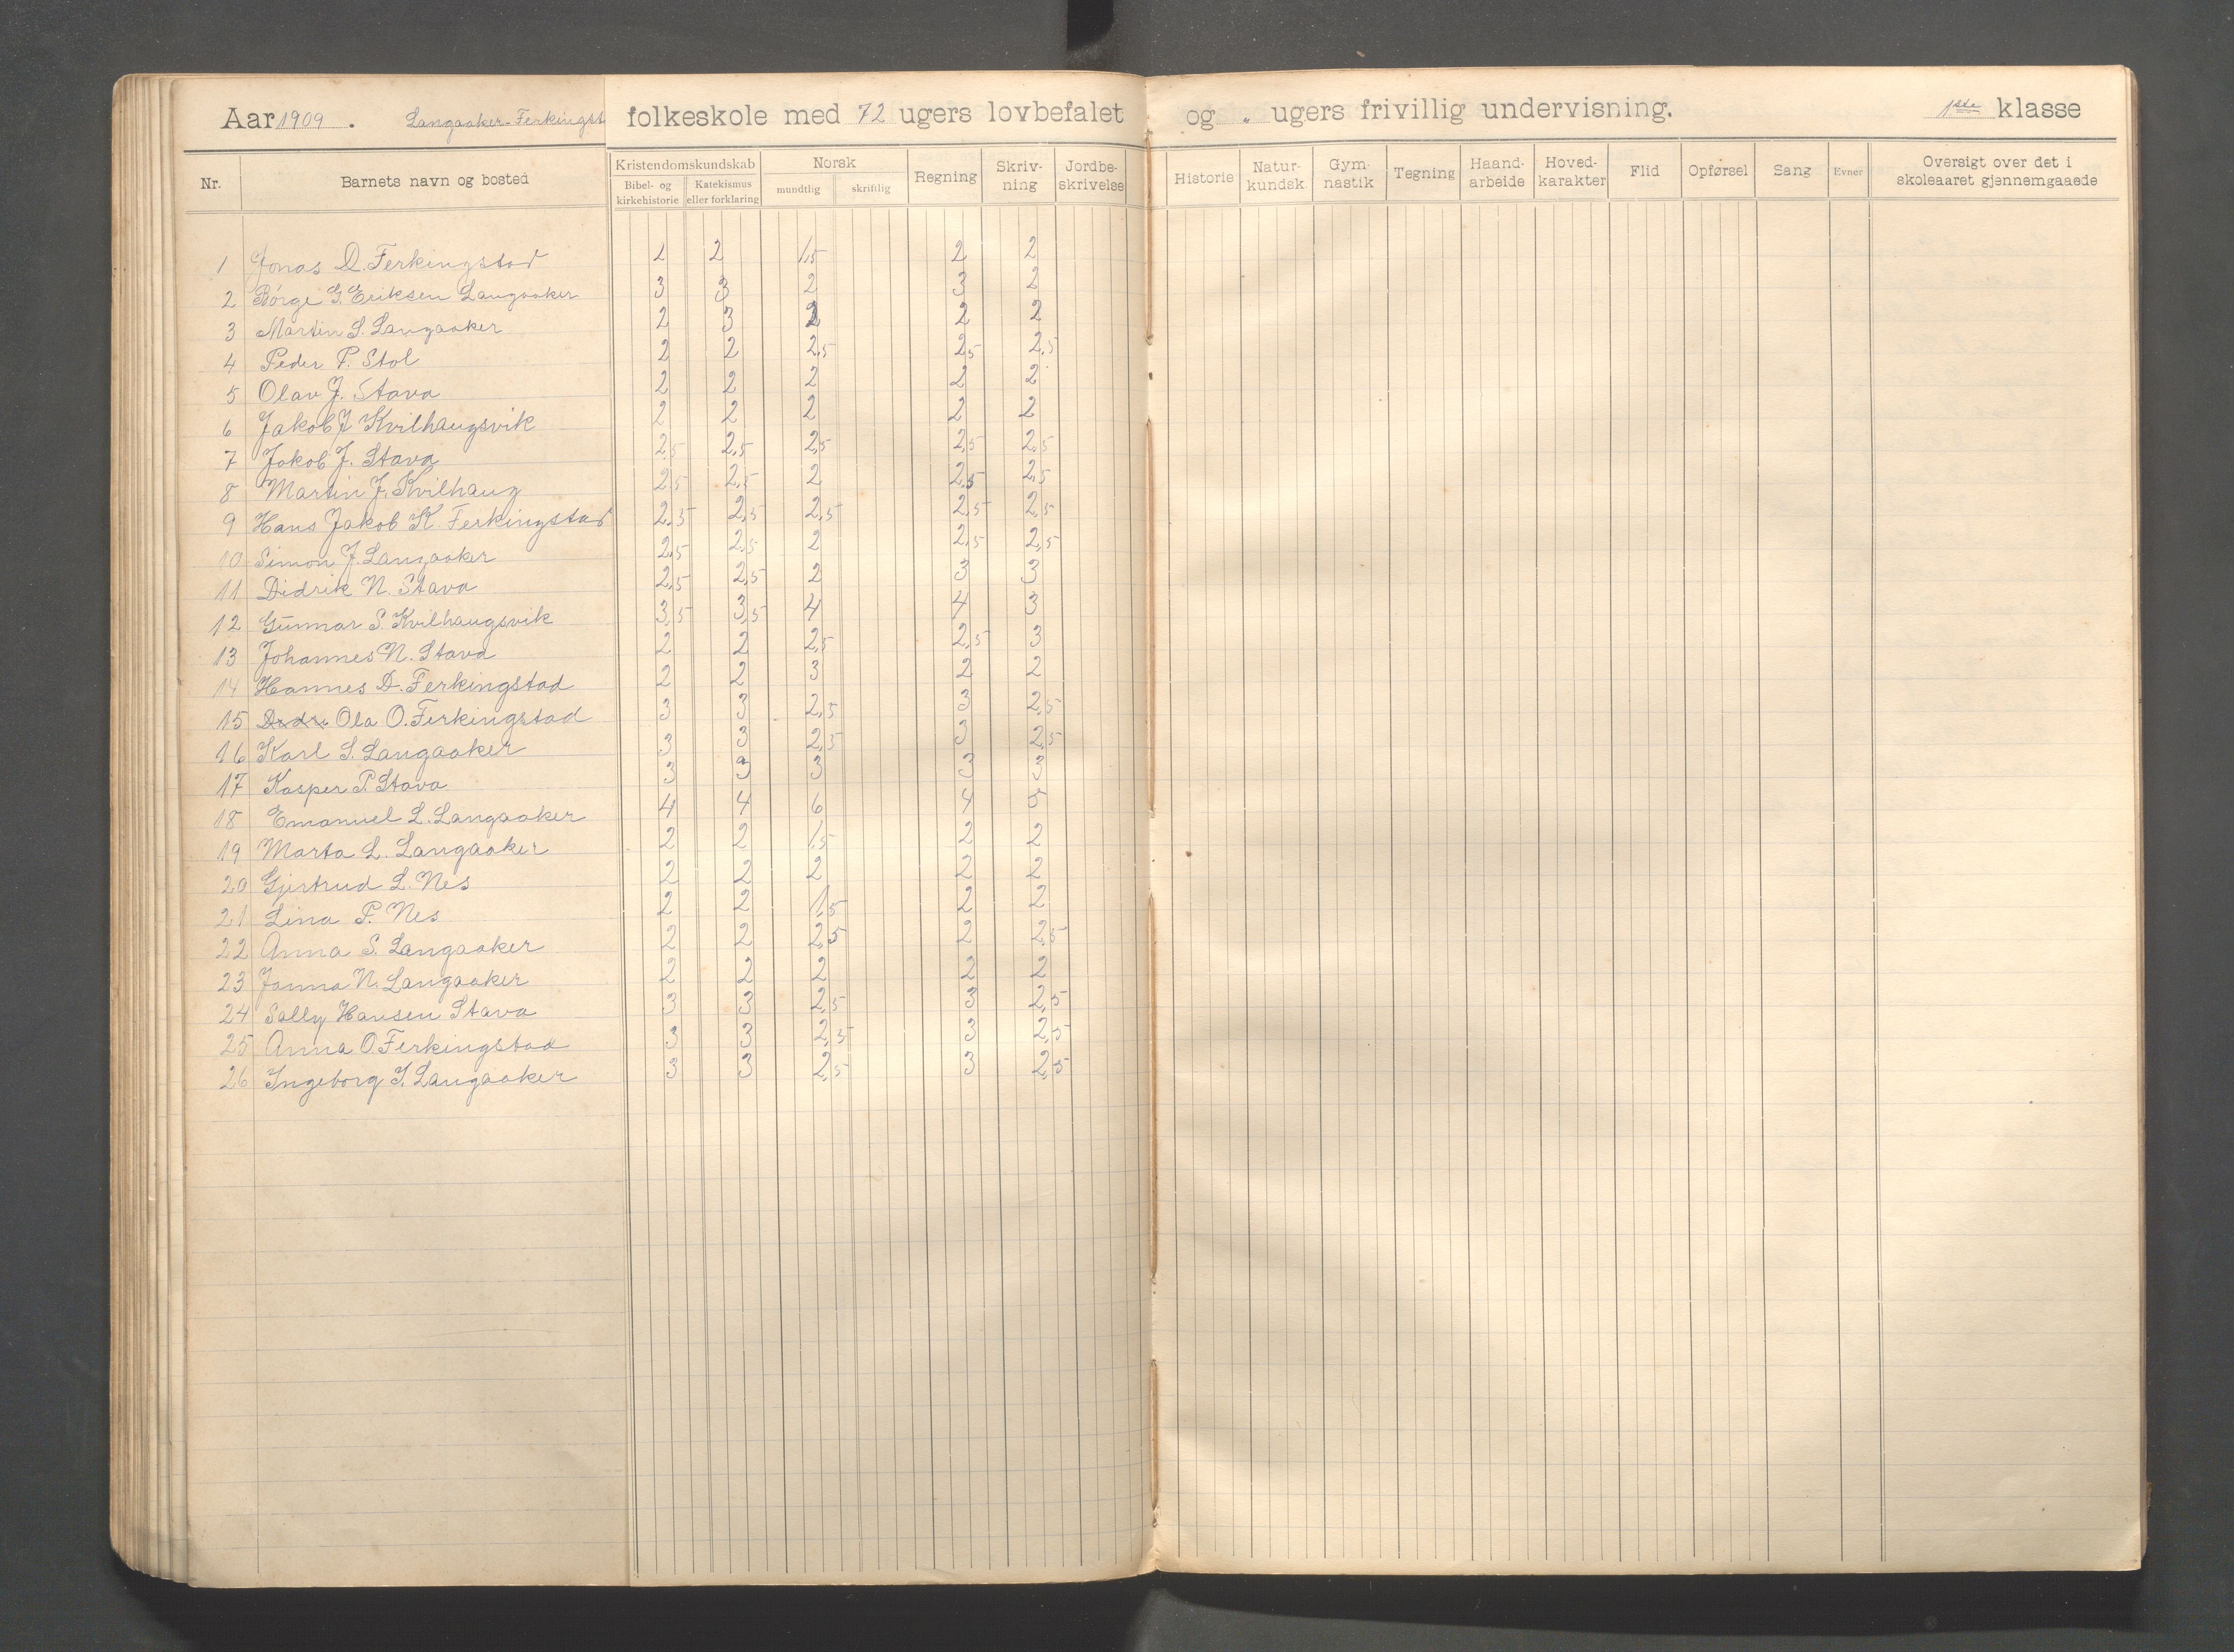 Aar 1909. Langaaker-Ferkingst folkeskole med 72 ugers lovbefalet og „ ugers frivillig undervisning. 1ste klasse
Nr. Barnets navn og bosted Kristendomskundskab Norsk Regning Skriv-ning Jordbe-skrivelse Historie Natur-kundsk. Gym-nastik Tegning Haand-arbeide Hoved-karakter Flid Opførsel Sang Evner Oversigt over det i skoleaaret gjennemgaaede
Bibel- og kirkehistorie Katekismus eller forklaring mundtlig skriftlig
1 Jonas D. Ferkingstad 1 2 1,5 2 2
2 Børge G. Eriksen Langaaker 3 3 2 3 2
3 Martin S. Langaaker 2 3 2 2 2
4 Peder P. Stol 2 2 2,5 2,5 2,5
5 Olav J. Stava 2 2 2 2 2
6 Jakob J Kvilhaugsvik 2 2 2 2 2
7 Jakob J. Stava 2,5 2,5 2,5 2,5 2,5
8 Martin J. Kvilhaug 2,5 2,5 2 2,5 2,5
9 Hans Jakob K. Ferkingstad 2,5 2,5 2,5 2,5 2,5
10 Simon J. Langaaker 2,5 2,5 2 2,5 2,5
11 Didrik N. Stava 2,5 2,5 2 3 3
12 Gunnar S. Kvilhaugsvik 3,5 3,5 4 4 3
13 Johannes N. Stava 2 2 2,5 2,5 3
14 Hannes D. Ferkingstad 2 2 3 2 2
15 Ola O. Ferkingstad 3 3 2,5 3 2,5
16 Karl S. Langaaker 3 3 2,5 3 2,5
17 Kasper P. Stava 3 3 3 3 3
18 Emanuel L. Langaaker 4 4 6 4 5
19 Marta L. Langaaker 2 2 1,5 2 2
20 Gjertrud L. Nes 2 2 2 2 2
21 Lina P. Nes 2 2 1,5 2 2
22 Anna S. Langaaker 2 2 2,5 2 2,5
23 Janna N. Langaaker 2 2 2 2 2
24 Sally Hansen Stava 3 3 2,5 3 2,5
25 Anna O. Ferkingstad 3 3 2,5 3 2,5
26 Ingeborg J. Langaaker 3 3 2,5 3 2,5